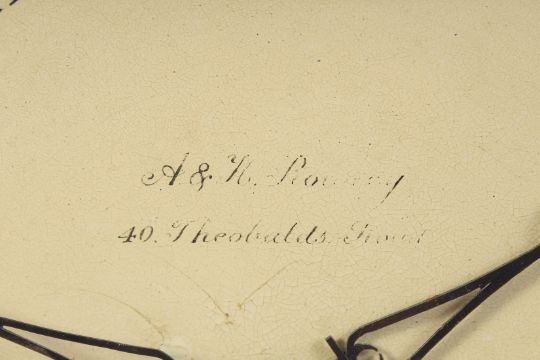 A & N. Rowney
40. Theobalds Road